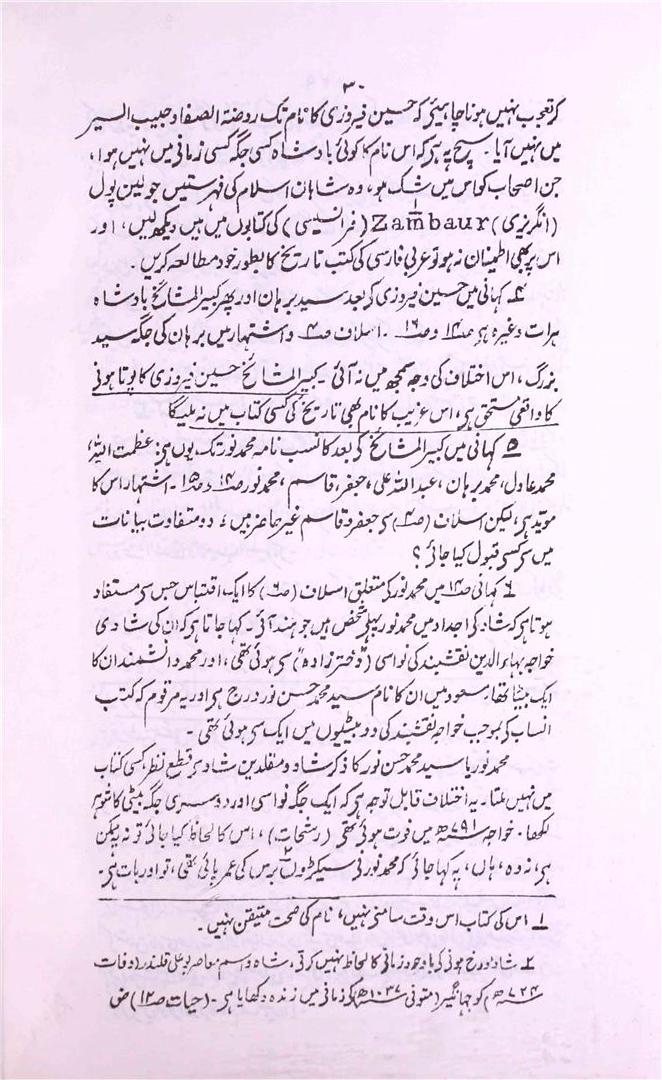 ۳۰
کر تعجب نہیں ہونا چاہیئے کہ حسین فیروزی کا نام تک روضۃ الصفا و حبیب السیر
میں نہیں آیا۔ سچ یہ ہی کہ اس نام کا کوئی بادشاہ کسی جگہ کسی زمانی میں نہیں ہوا،
جن اصحاب کو اس میں شک ہو، وہ شاہان اسلام کی فہرستیں جو لین پول
(انگریزی) Zambaur۱ (فرانسیسی) کی کتابوں میں ہیں دیکھ لیں، اور
اس پر بھی اطمنان نہ ہو تو عربی فارسی کی کتب تاریخ کا بطور خود مطالعہ کریں۔
۴ کہانی میں حسین فیروزی کے بعد سید برہان اور پھر کبیر المشائخ بادشاہ
ہرات وغیرہ ہے ص۱۴ و ص۱۶۔ اسلاف ص۴ و اشتہار میں برہان کی جگہ سید
بزرگ، اس اختلاف کی وجہ سمجھ میں نہ آئی۔ کبیر المشائخ حسین فیروزی کا پوتا ہونی
کا واقعی مستحق ہی، اس غریب کا نام بھی تاریخ کی کسی کتاب میں نہ ملیگا
۵ کہانی میں کبیر المشائخ کے بعد کا نسب نامہ محمد نور تک یوں ہی: عظمت اللہ،
محمد عادل، محمد برہان، عبد اللہ علی، جعفر، قاسم، محمد نور ص۱۴ و ص۱۵۔ اشتہار اس کا
موید ہی، لیکن اسلاف (ص۴) سی جعفر و قاسم غیر حاضر ہیں؛ دو متفاوت بیانات
میں سی کسی قبول کیا جائی؟
۶ کہانی ص۱۴ میں محمد نور کی متعلق اسلاف (ص۶) کا ایک اقتباس جس سی مستفاد
ہوتا ہی کہ شاد کی اجداد میں محمد نور پہلی شخص ہیں جو ہند آئی۔ کہا جاتا ہی کہ ان کی شادی
خواجہ بہاء الدین نقشبند کی نواسی (”دختر زادہ“) سی ہوئی تھی، اور محمد دانشمند ان کا
ایک بیٹا تھا۔ مسعود میں ان کا نام سید محمد حسن نور درج ہی اور یہ مرقوم کہ کتب
انساب کی بموجب خواجہ نقشبند کی دو بیٹیوں میں ایک سی ہوئی تھی۔
محمد نور یا سید محمد حسن نور کا ذکر شاد و مقلدین شاد سی قطع نظر کسی کتاب
میں نہیں ملتا۔ یہ اختلاف قابل توجہ ہی کہ ایک جگہ نواسی اور دوسری جگہ بیٹی کا شوہر
لکھا۔ خواجہ ۷۹۱ھ میں فوت ہوئی تھی (رشحات)، اس کا لحاظ کیا جائی تو نہ یہ ممکن
ہی، نہ وہ، ہاں، یہ کہا جائی کہ محمد نور نی سیکڑوں۲ برس کی عمر پائی تھی، تو اور بات ہی۔
۱ اس کی کتاب اس وقت سامنی نہیں، نام کی صحت متیقن نہیں۔
۲ شاد مورخ ہونی کی باوجود زمانی کا لحاظ نہیں کرتی، شاہ و ہم معاصر بو علی قلندر (وفات
۷۲۴ھ) کو جہانگیر (متوفی ۱۰۳۷ھ) کی زمانی میں زندہ دکھایا ہی۔ (حیات ص۱۲) ض